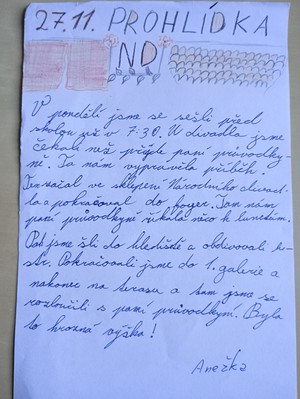 27.11. PROHLÍDKA
ND
V pondělí jsme se sešli před
školou už v 7:30. U divadla jsme
čekali než přijde paní průvodky-
ně. Ta nám vyprávěla příběh.
Ten začal ve sklepení Národního divad-
la a pokračoval do foyer. Tam nám
paní průvodkyně říkala něco k lunetám.
Pak jsme šli do hlediště a obdivovali
Pokračovali jsme do 1. galerie a
nakonec na terasu a tam jsme se
rozloučili s paní průvodkyní. Byla
to hrozná výška!
Anežka